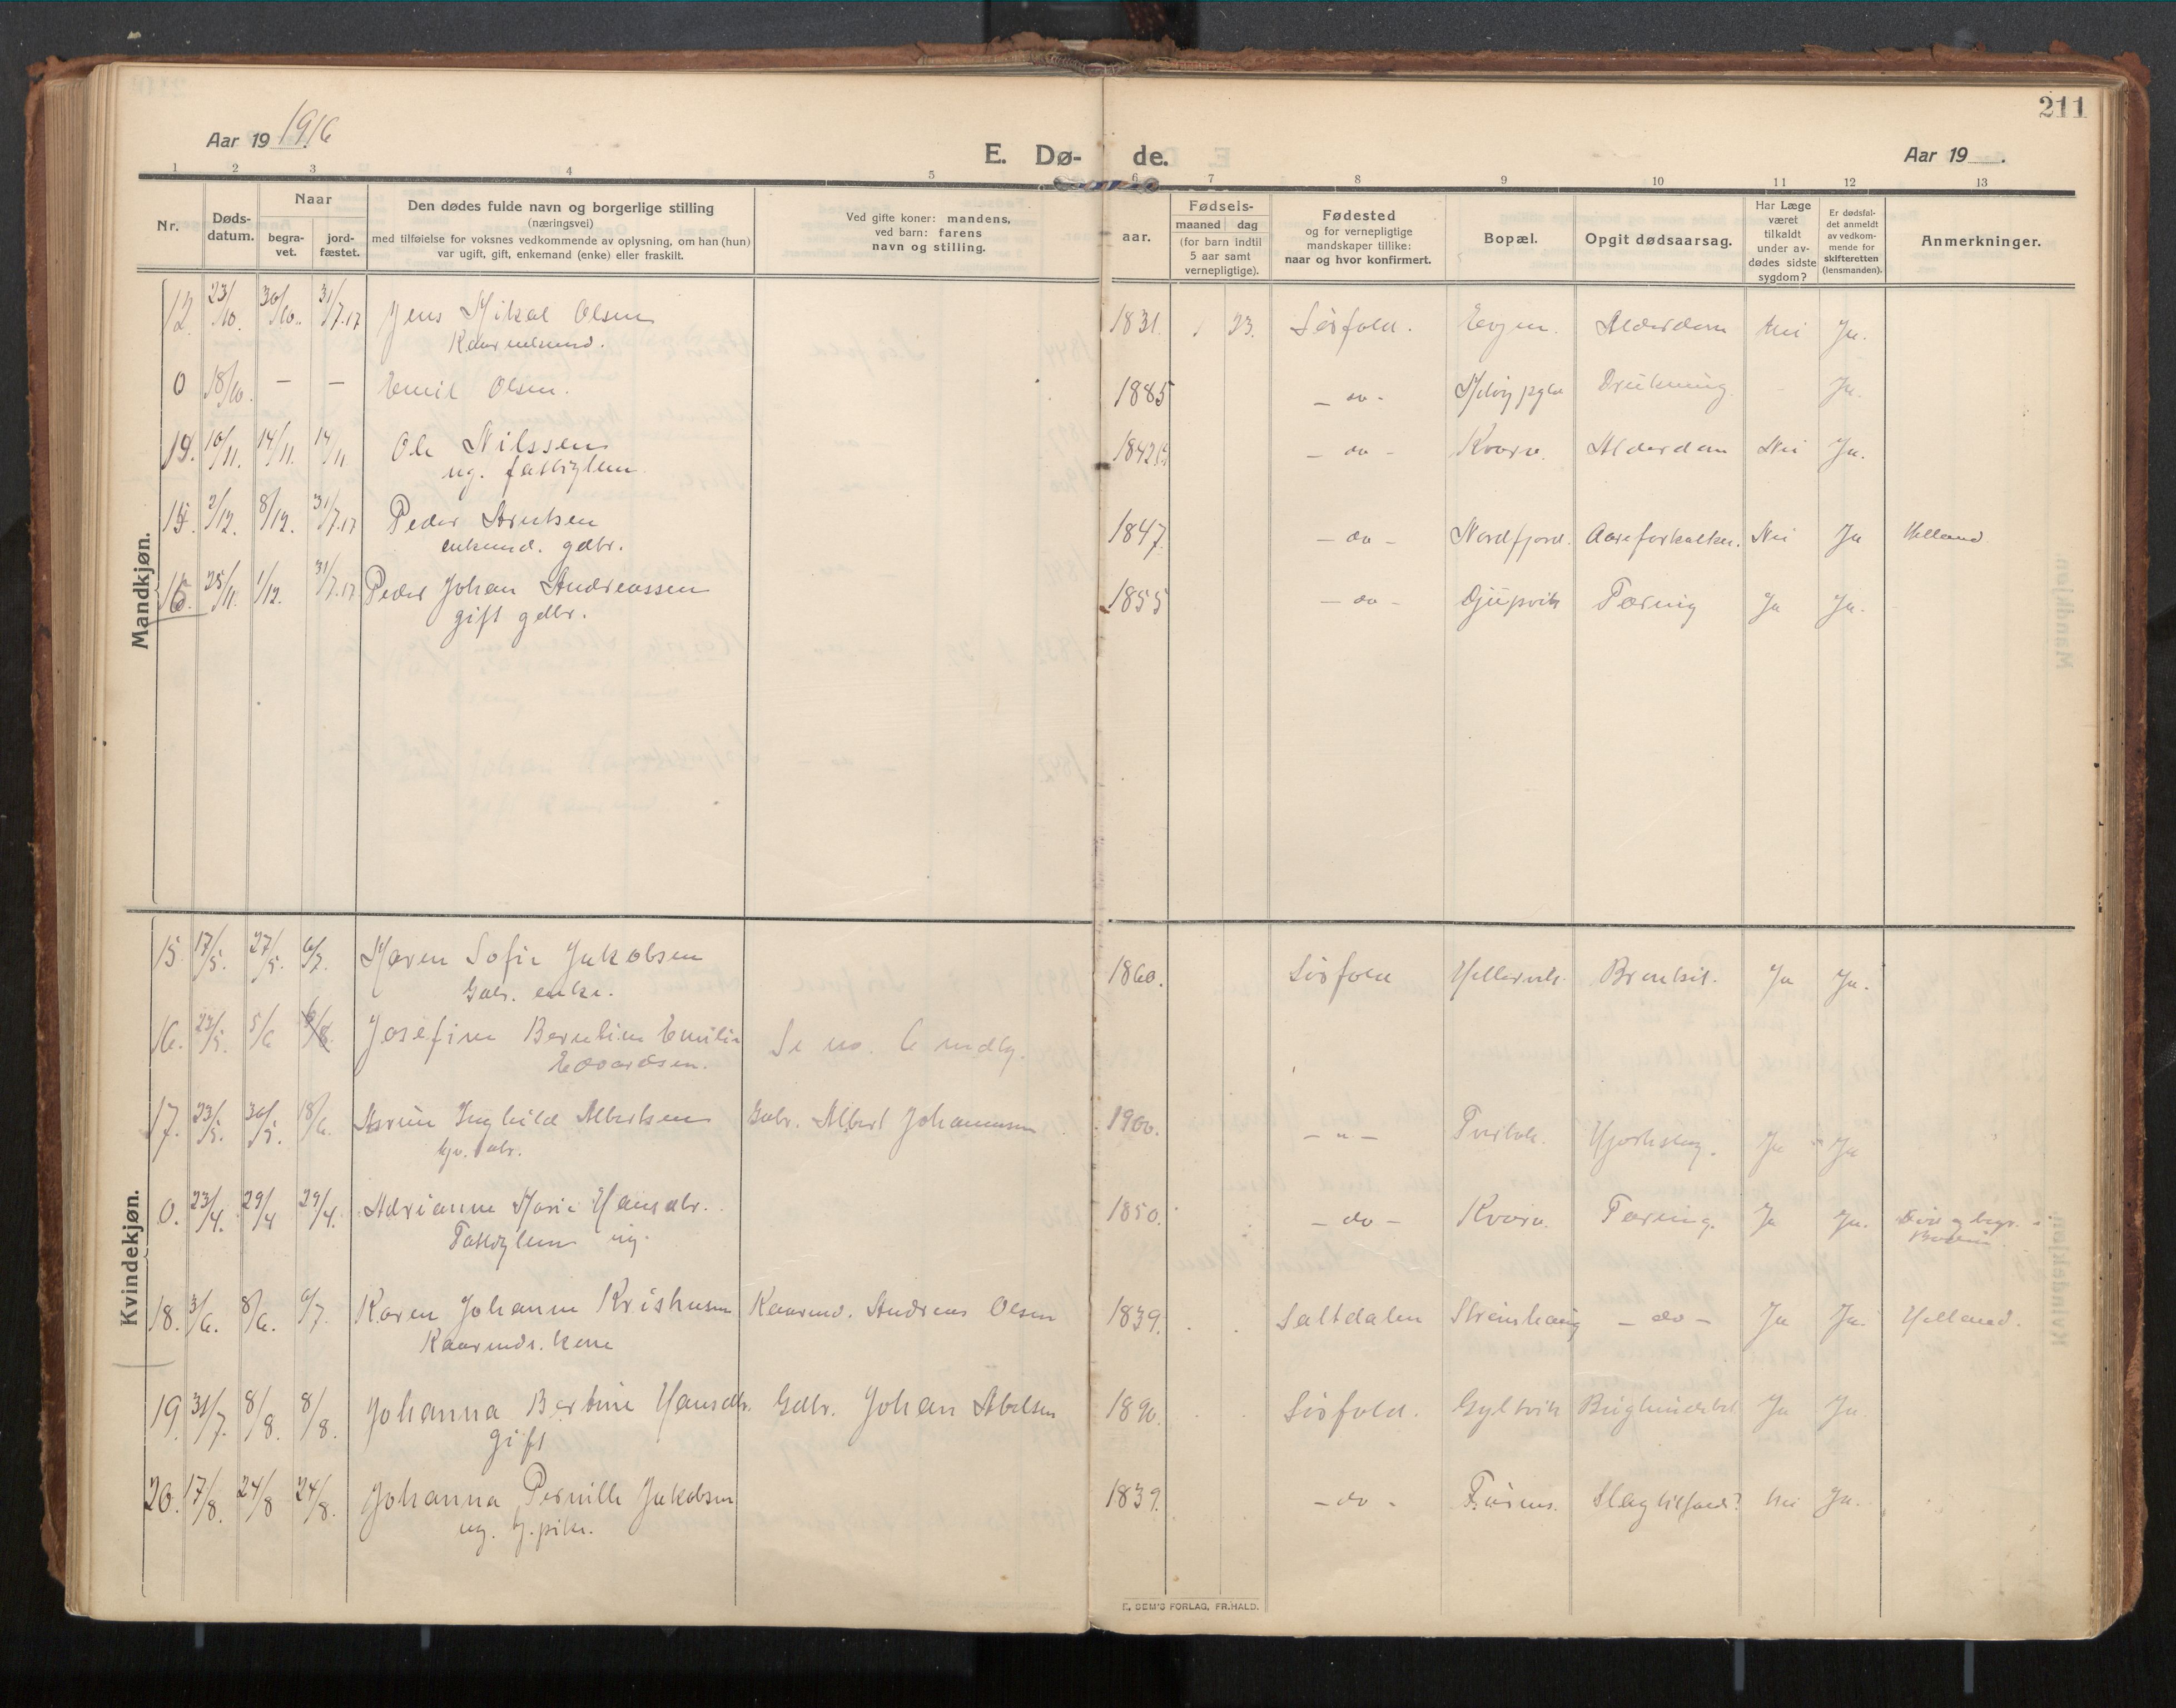 211
Aar 19 1916
E. Dø- de.
Aar 19 .
1 2 3 4 5 6 7 8 9 10 11 12 13
Nr.
Døds-
datum.
Naar
begra-
vet.
jord-
fæstet.
Den dødes fulde navn og borgerlige stilling
(næringsvei)
med tilføielse for voksnes vedkommende av oplysning, om han (hun)
var ugift, gift, enkemand (enke) eller fraskilt.
Ved gifte koner: mandens,
ved barn: farens
navn og stilling.
aar.
Fødsels-
maaned dag
(for barn indtil
5 aar samt
vernepligtige).
Fødested
og for vernepligtige
mandskaper tillike:
naar og hvor konfirmert.
Bopæl.
Opgit dødsaarsag.
Har Læge
været
tilkaldt
under av-
dødes sidste
sygdom?
Er dødsfal-
det anmeldt
av vedkom-
mende for
skifteretten
(lensmanden).
Anmerkninger.
Mandkjøn.
12 23/10. 30/10. 31/7.17 Jens Mikal Olsen 1831. 23. Sørfold. Evjen. Alderdom Nei Ja.
Kaarmand.
0 18/10. — — Emil Olsen. 1885 — do - Drukning. Ja.
14. 10/11. 14/11. 14/11 Ole Nilssen 1842 — do - Kvarv. Alderdom Nei Ja.
ug. fattiglem
15. 2/12. 8/12. 31/7.17 Peder Arntsen 1847. — do — Nordfjord. Aareforkalkn. Nei Ja Helland
enkemd. gdbr.
16. 25/11. 1/12. 31/7.17 Peder Johan Andreassen 1855 — do - Djupvik Tæring Ja Ja.
gift gdbr.
Kvindekjøn.
15 17/5. 27/5. 6/7. Maren Sofie Jakobsen 1860. Sørfold Hellarvik. Ja Ja.
Gdbr. enke.
16. 23/5. 5/6 Josefine Berntine Emilie Se no. 6 mdkj.
Edvardsen.
17. 23/5. 30/5. 18/6. Inghild Albertsen Gdbr. Albert Johannesen 1900. — " — Hjerteslag. Ja Ja
0. 23/4. 29/4 29/4. Adrianne Marie Hansdtr. 1850. — do — Kvarv. Tæring. Ja Ja.
Fattiglem ug.
18. 3/6. 8/6. 6/7. Karen Johanne Kristensen Kaarmd. Andreas Olsen 1839. Saltdalen — do — Ja Ja. Helland.
Kaarmds. kone
19. 31/7. 8/8. 8/8. Johanna Bertine Hansdtr. Gdbr. Johan Abelsen 1890. Sørfold. Gyltvik Ja Ja
gift
20. 17/8. 24/8 24/8. Johanna Pernille Jakobsen 1839. — do - Slagtilfæld? Nei Ja.
E. SEM'S FORLAG, FR.HALD.